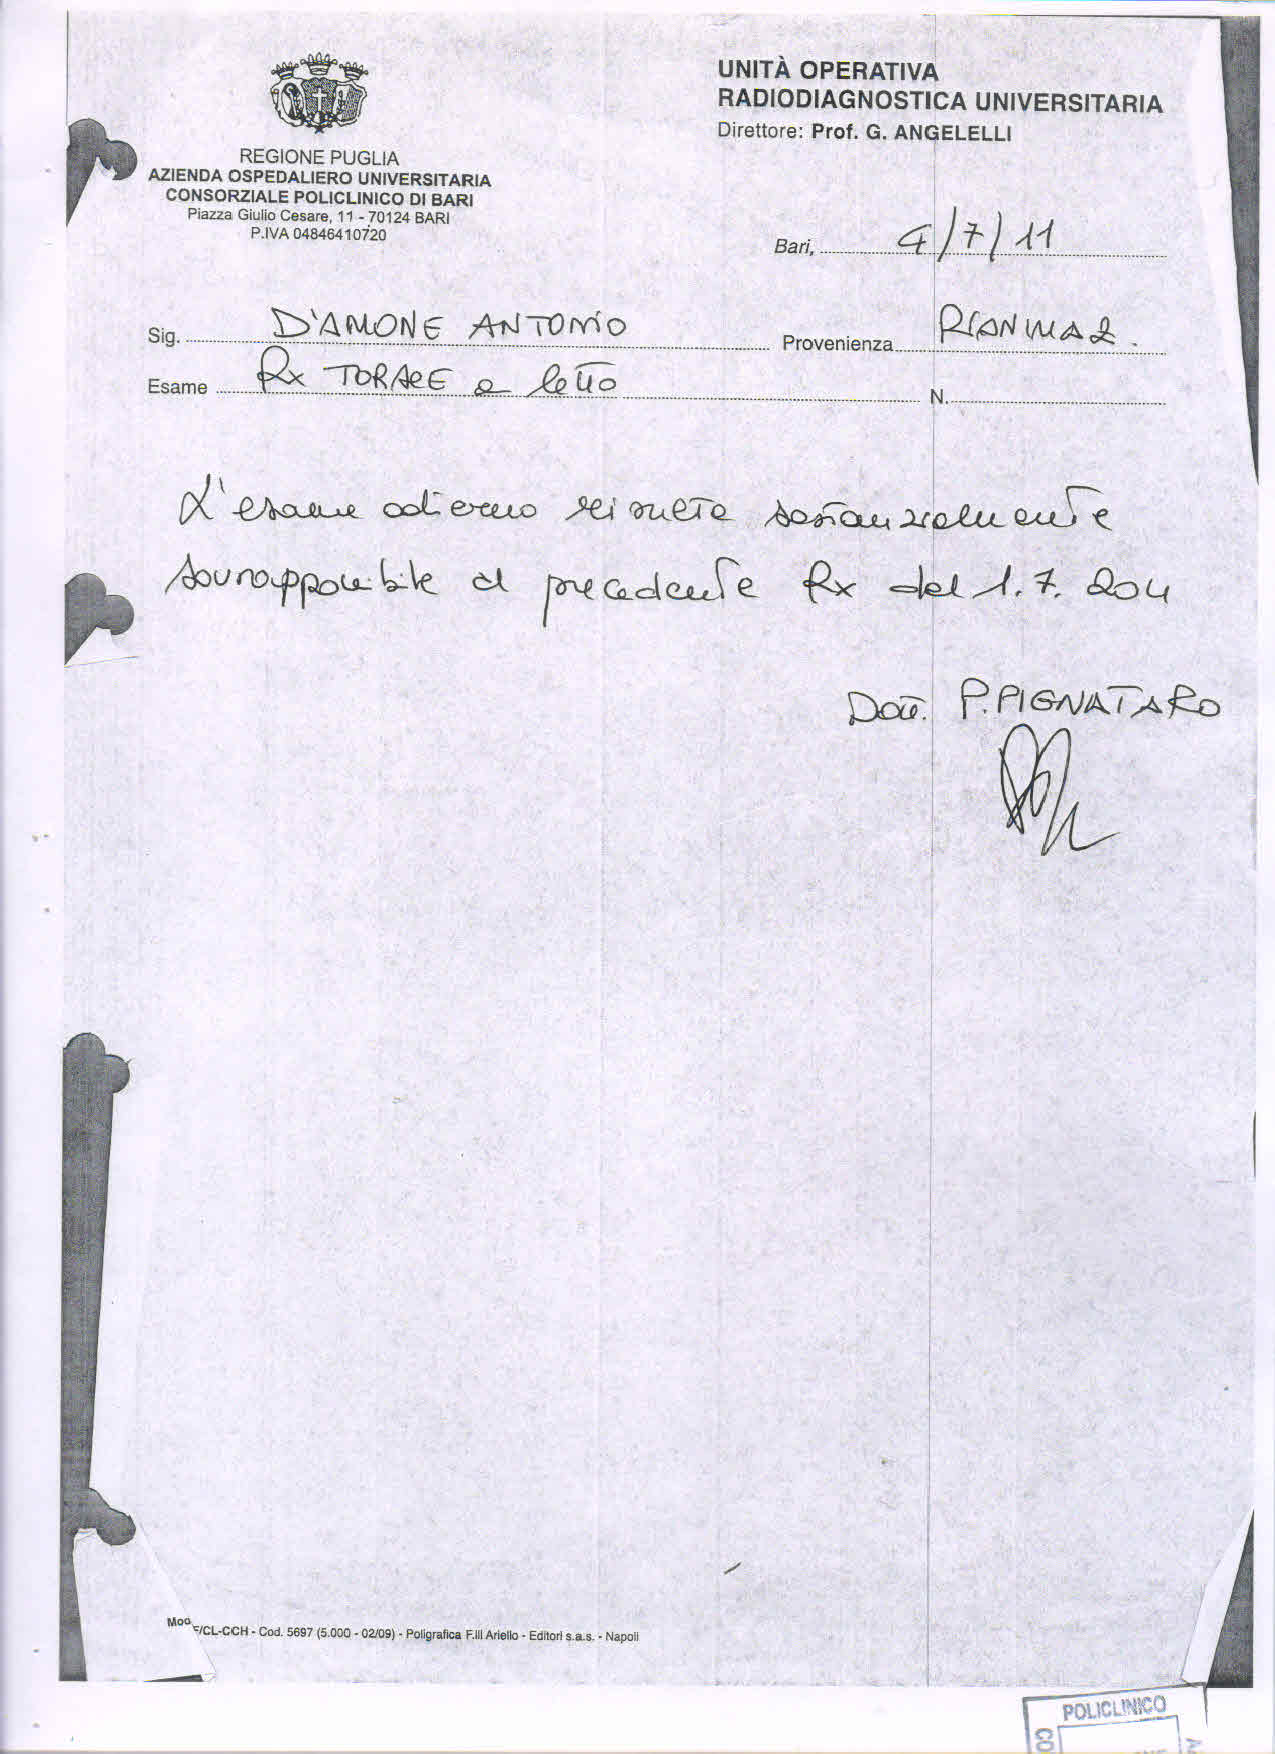 REGIONE PUGLIA
AZIENDA OSPEDALIERO UNIVERSITARIA
CONSORZIALE POLICLINICO DI BARI
Piazza Giulio Cesare, 11 - 70124 BARI
P.IVA 04846410720
UNITÀ OPERATIVA
RADIODIAGNOSTICA UNIVERSITARIA
Direttore: Prof. G. ANGELELLI
Bari, 4/7/11
Sig. D'AMONE ANTONIO Provenienza RIANIMAZ.
Esame Rx TORACE a letto N.
L'esame odierno risulta sostanzialmente
sovrapponibile al precedente Rx del 1.7.2011
Dott. P. PIGNATARO
Mod. F/CL-CCH - Cod. 5697 (5.000 - 02/09) - Poligrafica F.lli Ariello - Editori s.a.s. - Napoli
POLICLINICO
CO